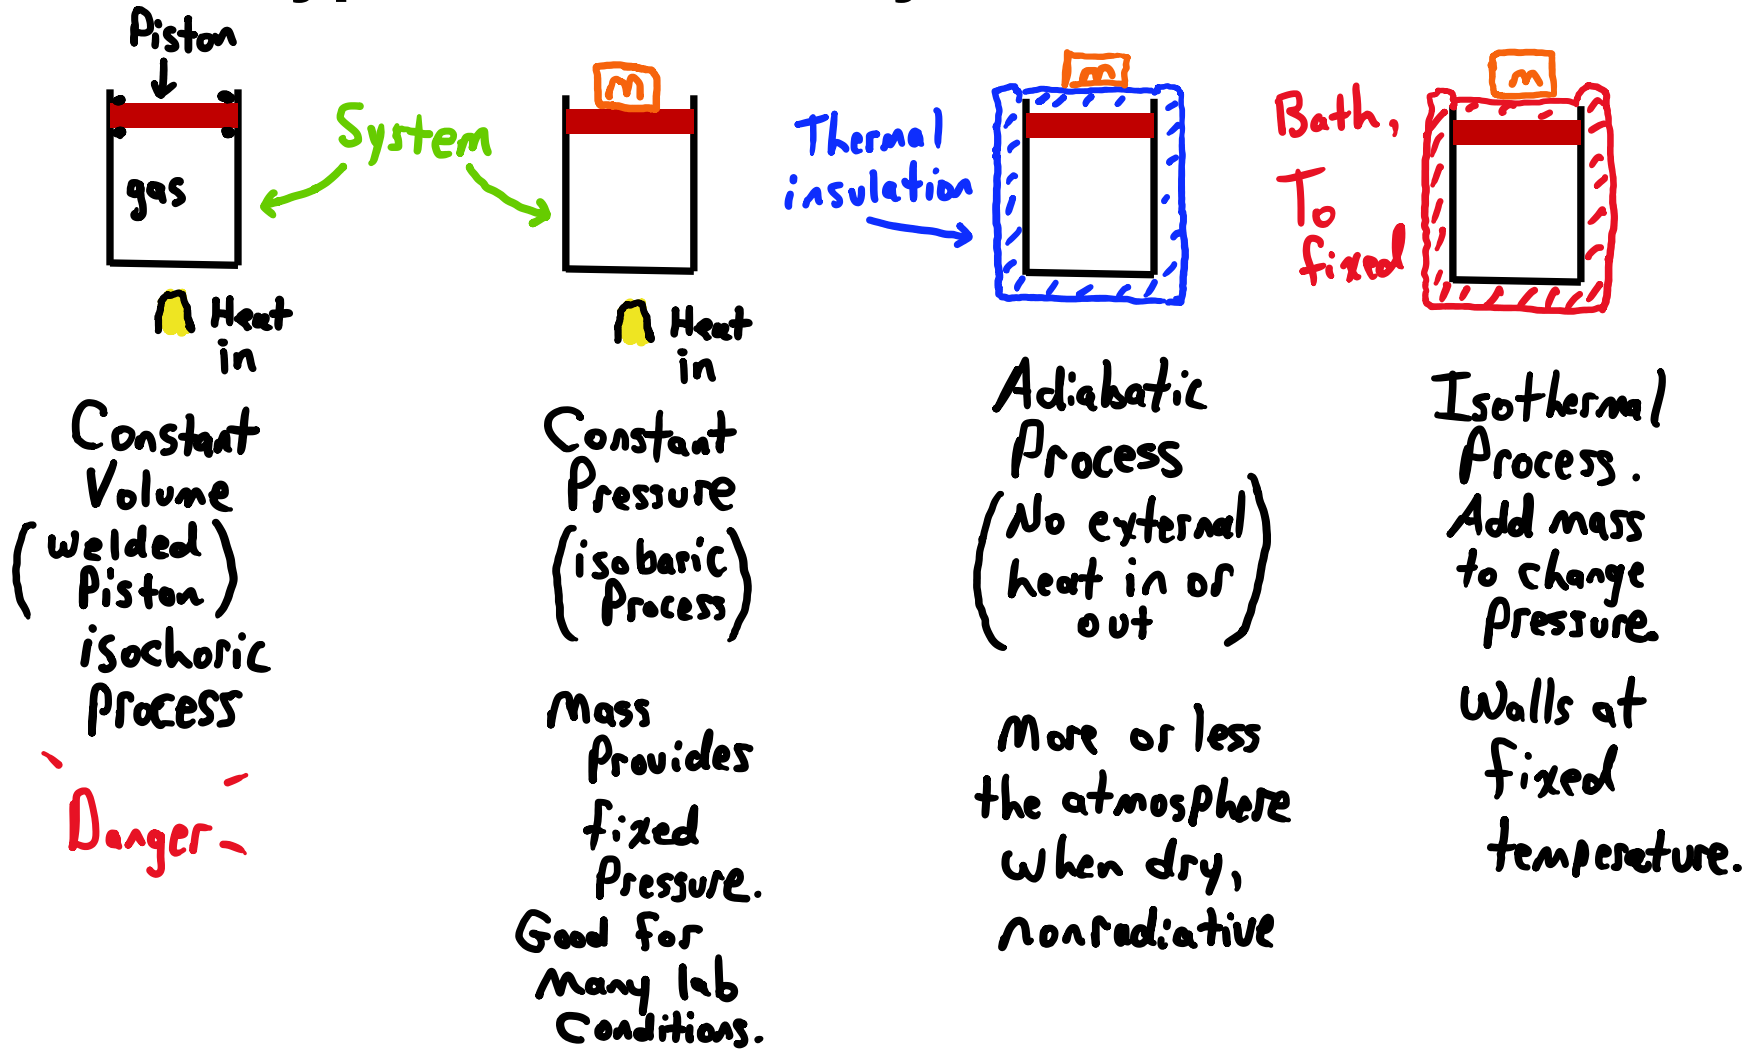 Piston
gas
Heat
in
Constant
Volume
(welded
Piston)
isochoric
Process
Danger
System
m
Heat
in
Constant
Pressure
(isobaric
Process)
Mass
Provides
fixed
Pressure.
Good for
Many lab
Conditions.
Thermal
insulation
m
Adiabatic
Process
(No external
heat in or
out)
More or less
the atmosphere
when dry,
nonradiative
Bath,
To
fixed
m
Isothermal
Process.
Add mass
to change
Pressure.
Walls at
fixed
temperature.